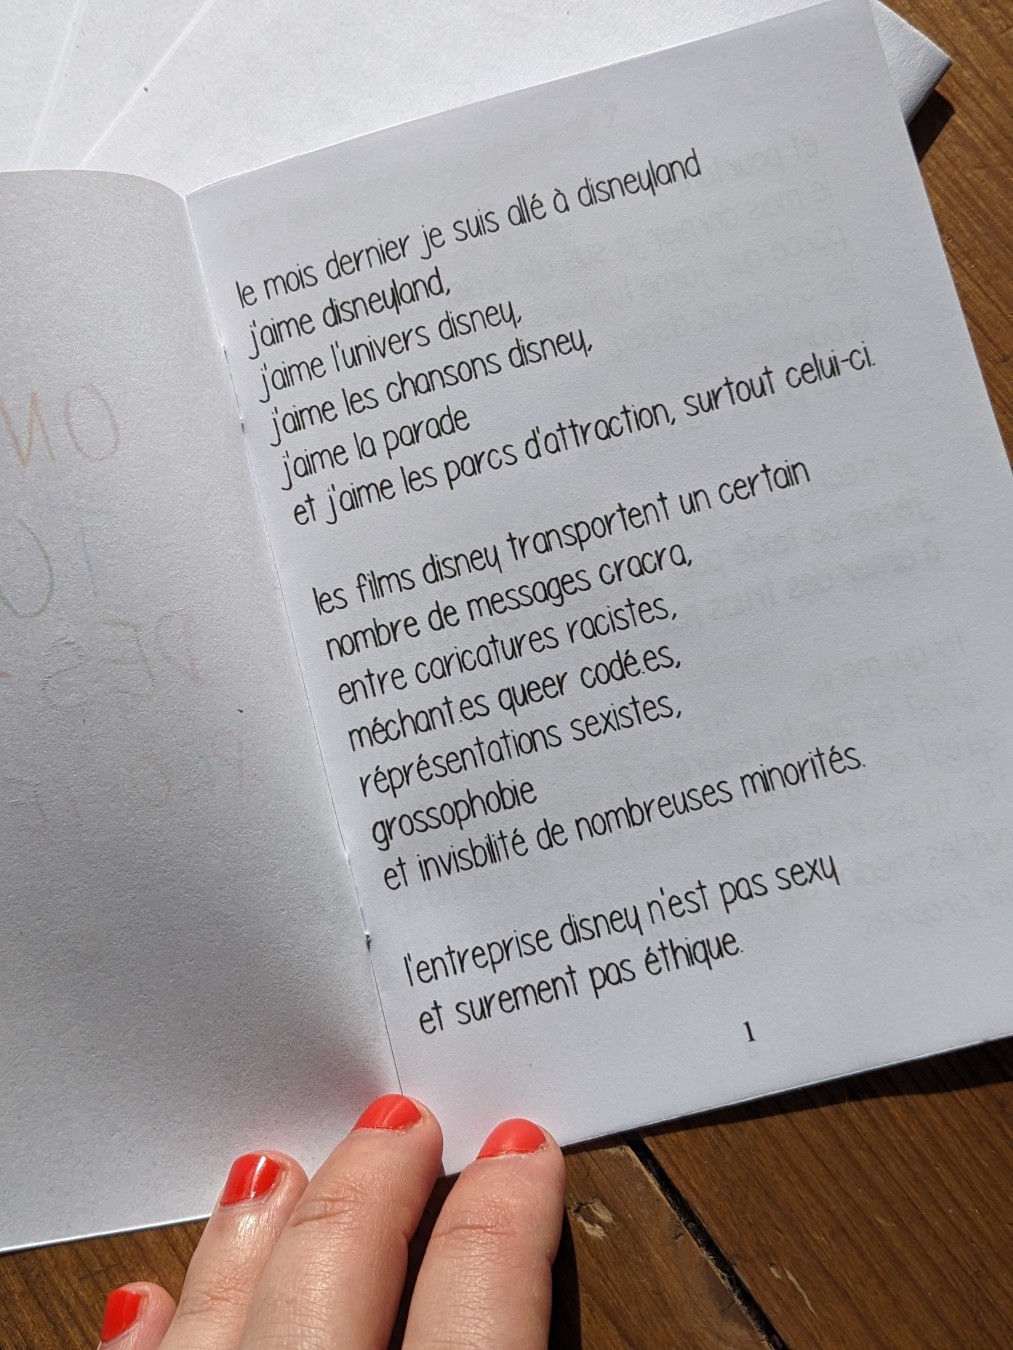 le mois dernier je suis allé à disneyland
j'aime disneyland,
j'aime l'univers disney,
j'aime les chansons disney,
j'aime la parade
et j'aime les parcs d'attraction, surtout celui-ci.
les films disney transportent un certain
nombre de messages cracra,
entre caricatures racistes,
méchant.es queer codé.es,
réprésentations sexistes,
grossophobie
et invisbilité de nombreuses minorités.
l'entreprise disney n'est pas sexy
et surement pas éthique.
1